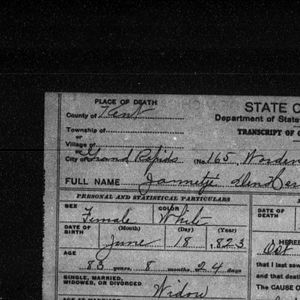 PLACE OF DEATH
STATE O
County of Kent
Department of State
Township of
TRANSCRIPT OF C
or
Village of
or
City of Grand Rapids (No. 165, Worden
FULL NAME Jannetje
PERSONAL AND STATISTICAL PARTICULARS
SEX Female COLOR White
DATE OF DEATH
DATE OF BIRTH (Month) (Day) (Year)
June 18, 1823
I HERE
Oct
AGE
that I last saw
83 years, 8 months, 24 days
and that death
SINGLE, MARRIED, WIDOWED, OR DIVORCED Widow
The CAUSE O